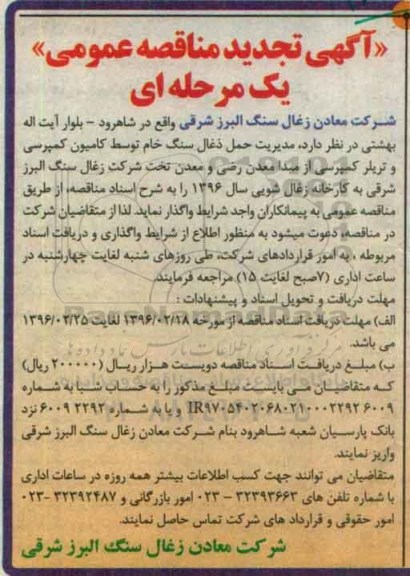 «آگهی تجدید مناقصه عمومی»
یک مرحله ای
شرکت معادن زغال سنگ البرز شرقی واقع در شاهرود - بلوار آیت اله
بهشتی در نظر دارد، مدیریت حمل ذغال سنگ خام توسط کامیون کمپرسی
و تریلر کمپرسی از مبداء معدن رضی و معدن تخت شرکت زغال سنگ البرز
شرقی به کارخانه زغال شویی سال ۱۳۹۶ را به شرح اسناد مناقصه، از طریق
مناقصه عمومی به پیمانکاران واجد شرایط واگذار نماید. لذا از متقاضیان شرکت
در مناقصه، دعوت میشود به منظور اطلاع از شرایط واگذاری و دریافت اسناد
مربوطه ، به امور قراردادهای شرکت، طی روزهای شنبه لغایت چهارشنبه در
ساعت اداری (۷صبح لغایت ۱۵) مراجعه فرمایند.
مهلت دریافت و تحویل اسناد و پیشنهادات :
الف) مهلت دریافت اسناد مناقصه از مورخه ۱۳۹۶/۰۲/۱۸ لغایت ۱۳۹۶/۰۲/۲۵
می باشد.
ب) مبلغ دریافت اسناد مناقصه دویست هزار ریال (۲۰۰۰۰۰ ریال)
که متقاضیان می بایست مبلغ مذکور را به حساب شبا به شماره
IR۹۷۰۵۴۰۲۰۶۸۰۲۱۰۰۰۲۲۹۲۶۰۰۹ و یا به شماره ۲۲۹۲۶۰۰۹ نزد
بانک پارسیان شعبه شاهرود بنام شرکت معادن زغال سنگ البرز شرقی
واریز نمایند.
متقاضیان می توانند جهت کسب اطلاعات بیشتر همه روزه در ساعات اداری
با شماره تلفن های ۳۲۳۹۳۶۶۳ - ۰۲۳ امور بازرگانی و ۳۲۳۹۲۴۸۷ -۰۲۳
امور حقوقی و قرارداد های شرکت تماس حاصل نمایند.
شرکت معادن زغال سنگ البرز شرقی